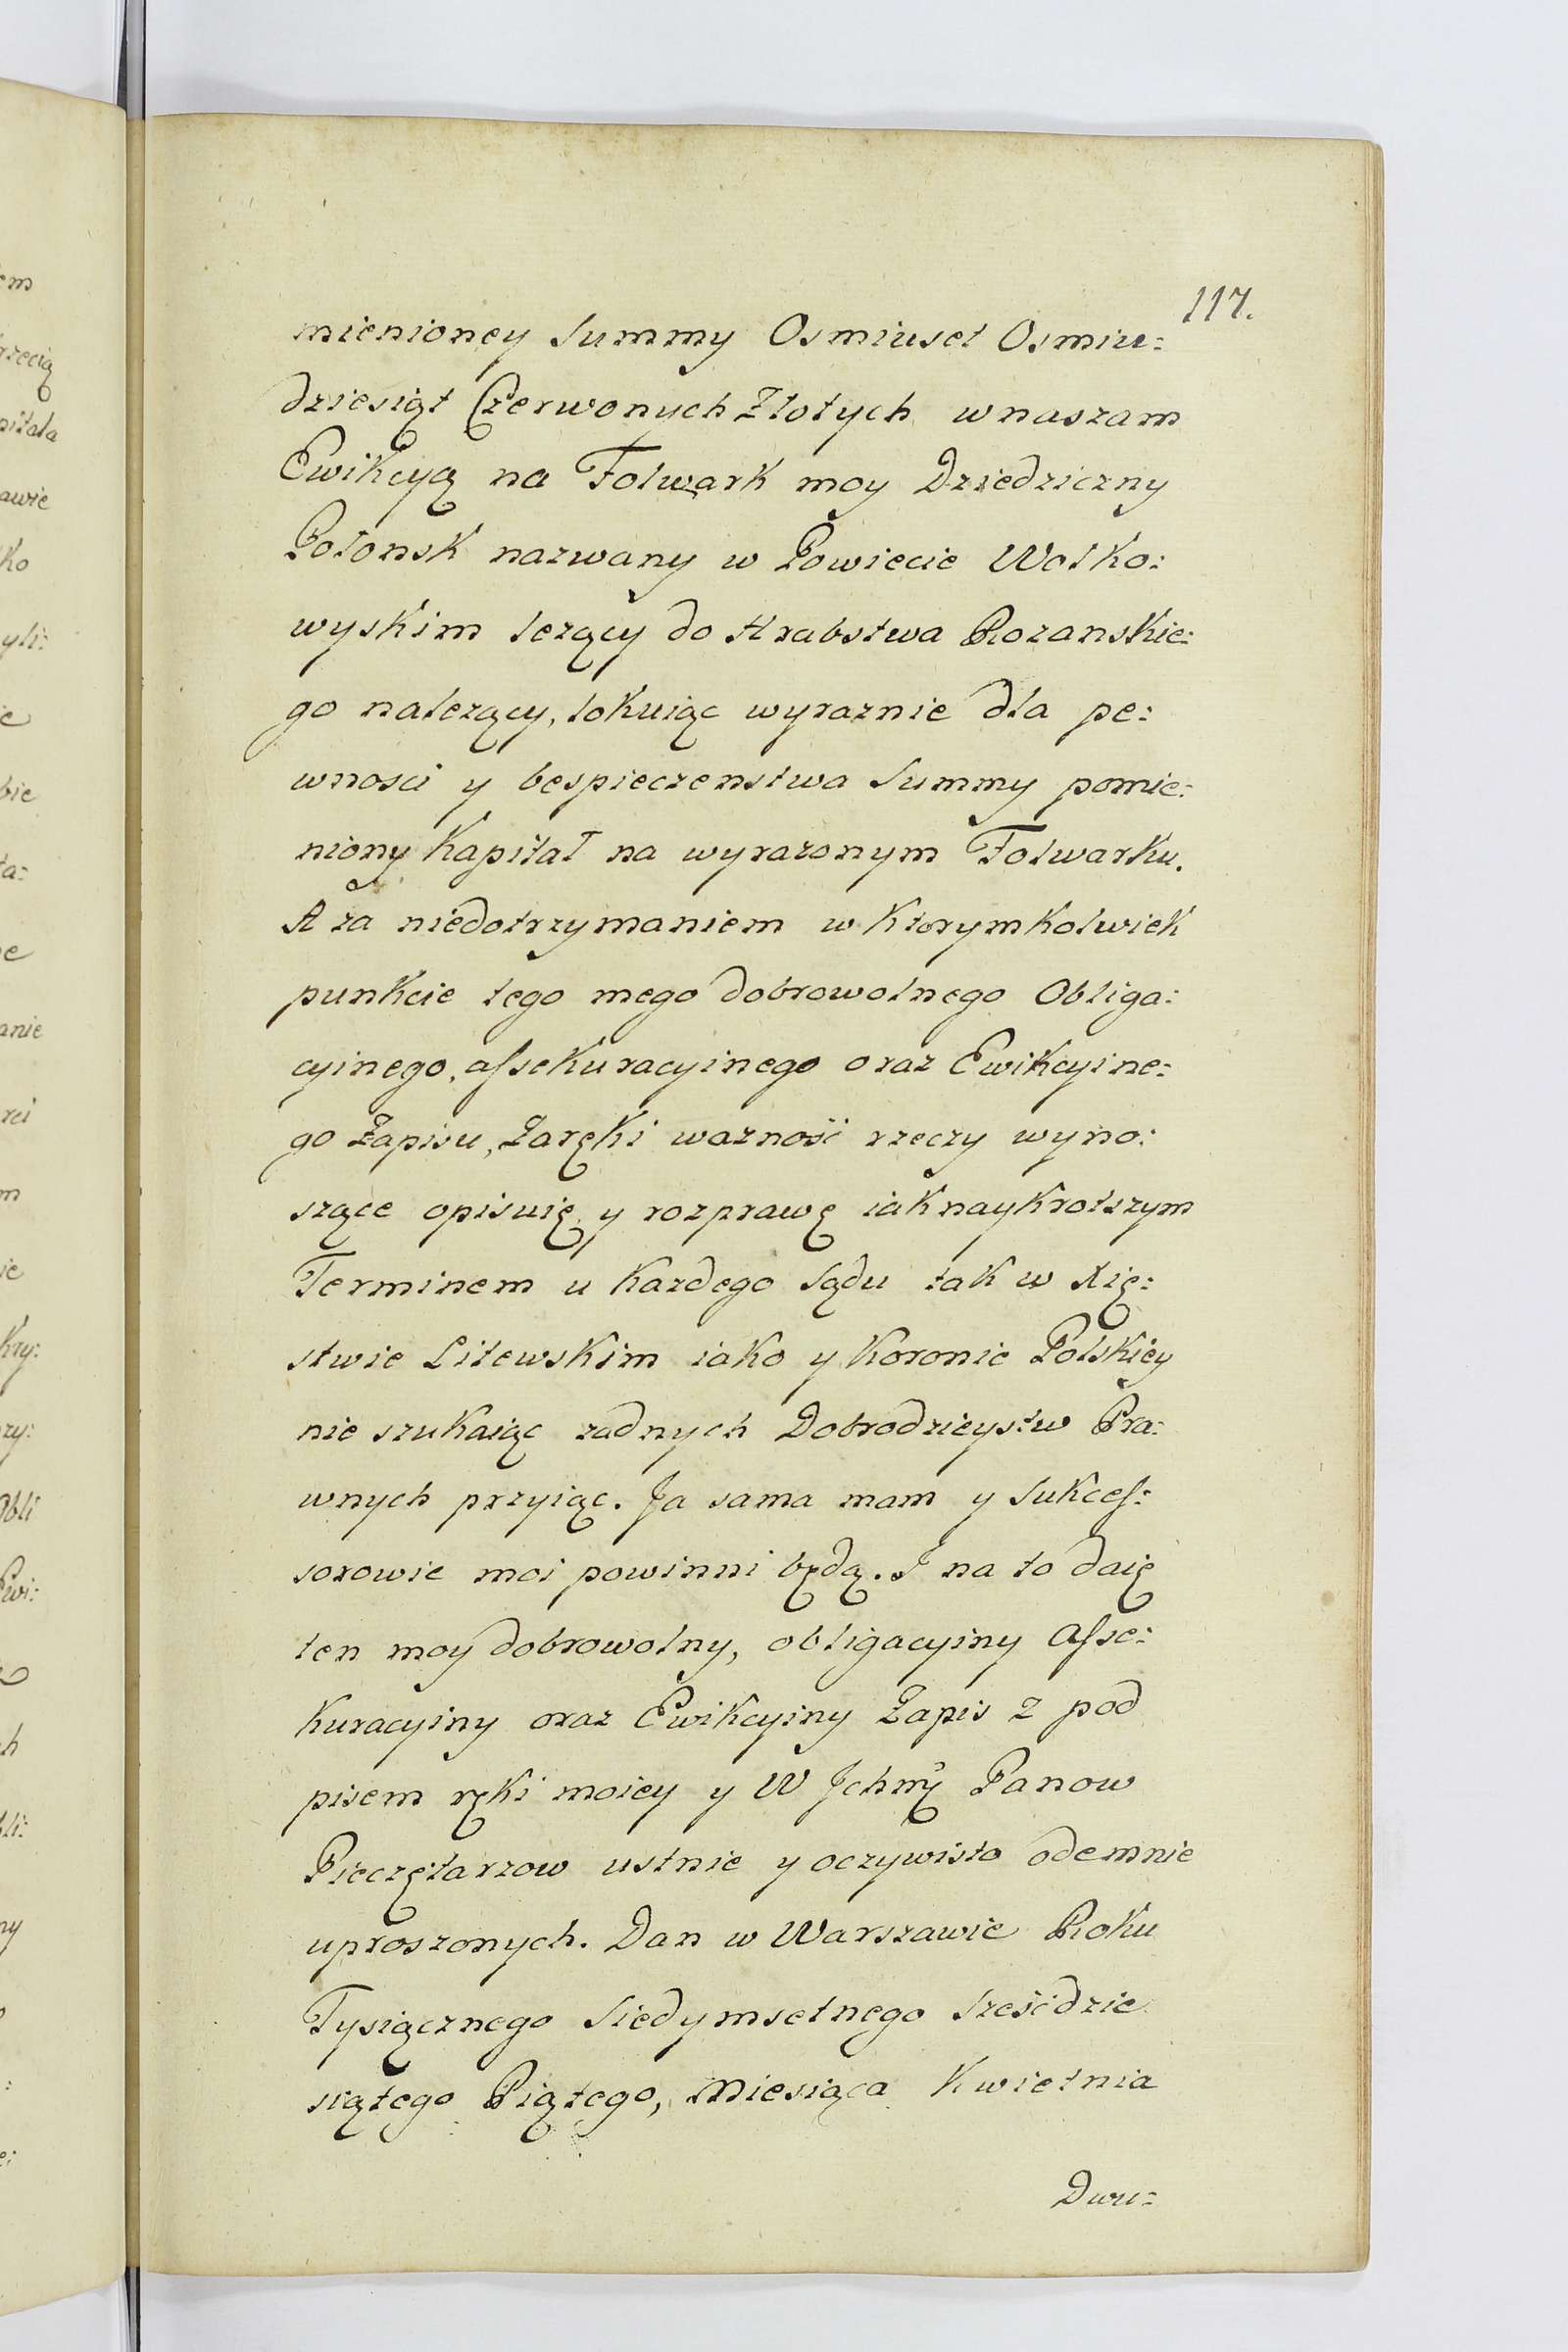 117.
mienioney Summy Osmiuset Osmiu:
dziesiąt Czerwonych Złotych wnaszam
Ewikcyą na Folwark moy Dziedziczny
Połonsk nazwany w Powiecie Wołko:
wyskim lezący do Hrabstwa Rozanskie:
go nalezący, lokuiąc wyraznie dla pe:
wnosci y bespieczenstwa Summy pomie:
niony Kapitał na wyrazonym Folwarku.
A za niedotrzymaniem w Ktorymkolwiek
punkcie tego mego dobrowolnego Obliga:
cyinego, assekuracyinego oraz Ewikcyine:
go Zapisu, Zaręki wazność rzeczy wyno:
szące opisuię y rozprawę iak naykrotszym
Terminem u Kazdego Sądu tak w Xię:
stwie Litewskim iako y Koronie Polskiey
nie szukaiąc zadnych Dobrodzieystw Pra:
wnych przyiąc. Ja sama mam y Sukces:
sorowie moi powinni będą. I na to daię
ten moy dobrowolny, obligacyiny Asse:
kuracyiny oraz Ewikcyiny Zapis z pod
pisem ręki moiey y W Jchmę Panow
Pieczętarzow ustnie y oczywisto odemnie
uproszonych. Dan w Warszawie Roku
Tysiącznego Siedymsetnego Sześćdzie
siątego Piątego, Miesiąca Kwietnia
Dwu: